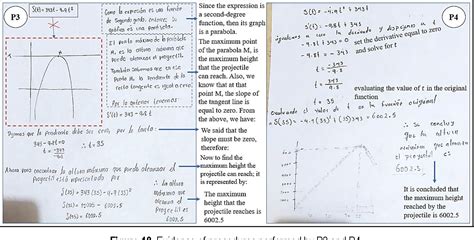 P3
S(t) = 343t - 4.9t²
Como la expresión es una función
de segundo grado entonces su
gráfica es una parábola.
El punto máximo de la parábola
M, es la altura máxima que
puede alcanzar el proyectil.
punto M, la pendiente de la
recta tangente es igual a cero.
Por lo anterior tenemos
S'(t) = 343 - 9.8t
Digamos que la pendiente debe ser cero, por lo tanto:
343 - 9.8t = 0
∴ t = 35
Ahora para encontrar la altura máxima que puede alcanzar el
proyectil está representado por
S(35) = 343(35) - 4.9(35)²
S(35) = 12005 - 6002.5
S(35) = 6002.5
∴ La altura
máxima que
alcanza el
proyectil es
6002.5
Since the expression is
a second-degree
function, then its graph
is a parabola.
The maximum point
of the parabola M, is
the maximum height
that the projectile
can reach. Also, we
know that at that
point M, the slope of
the tangent line is
equal to zero. From
the above, we have:
We said that the
slope must be zero,
therefore:
Now to find the
maximum height the
projectile can reach; it
is represented by:
The maximum
height that the
projectile reaches is
6002.5
P4
S(t) = -4.9t² + 343t
S'(t) = -9.8t + 343
igualamos a la derivada y despejamos a t
-9.8t + 343 = 0
-9.8t = -343
t = -343
-9.8
t = 35
set the derivative equal to zero
and solve for t
evaluating the value of t in the original
function
Evaluando el valor de t en la función original
S(35) = -4.9(35)²+(35)343 = 6002.5
∴ se concluye
que la altura
máxima que alcanza
el proyectil es
6002.5
It is concluded that
the maximum height
the projectile reaches
is 6002.5
Figure 18. Evidence of procedures performed by P3 and P4